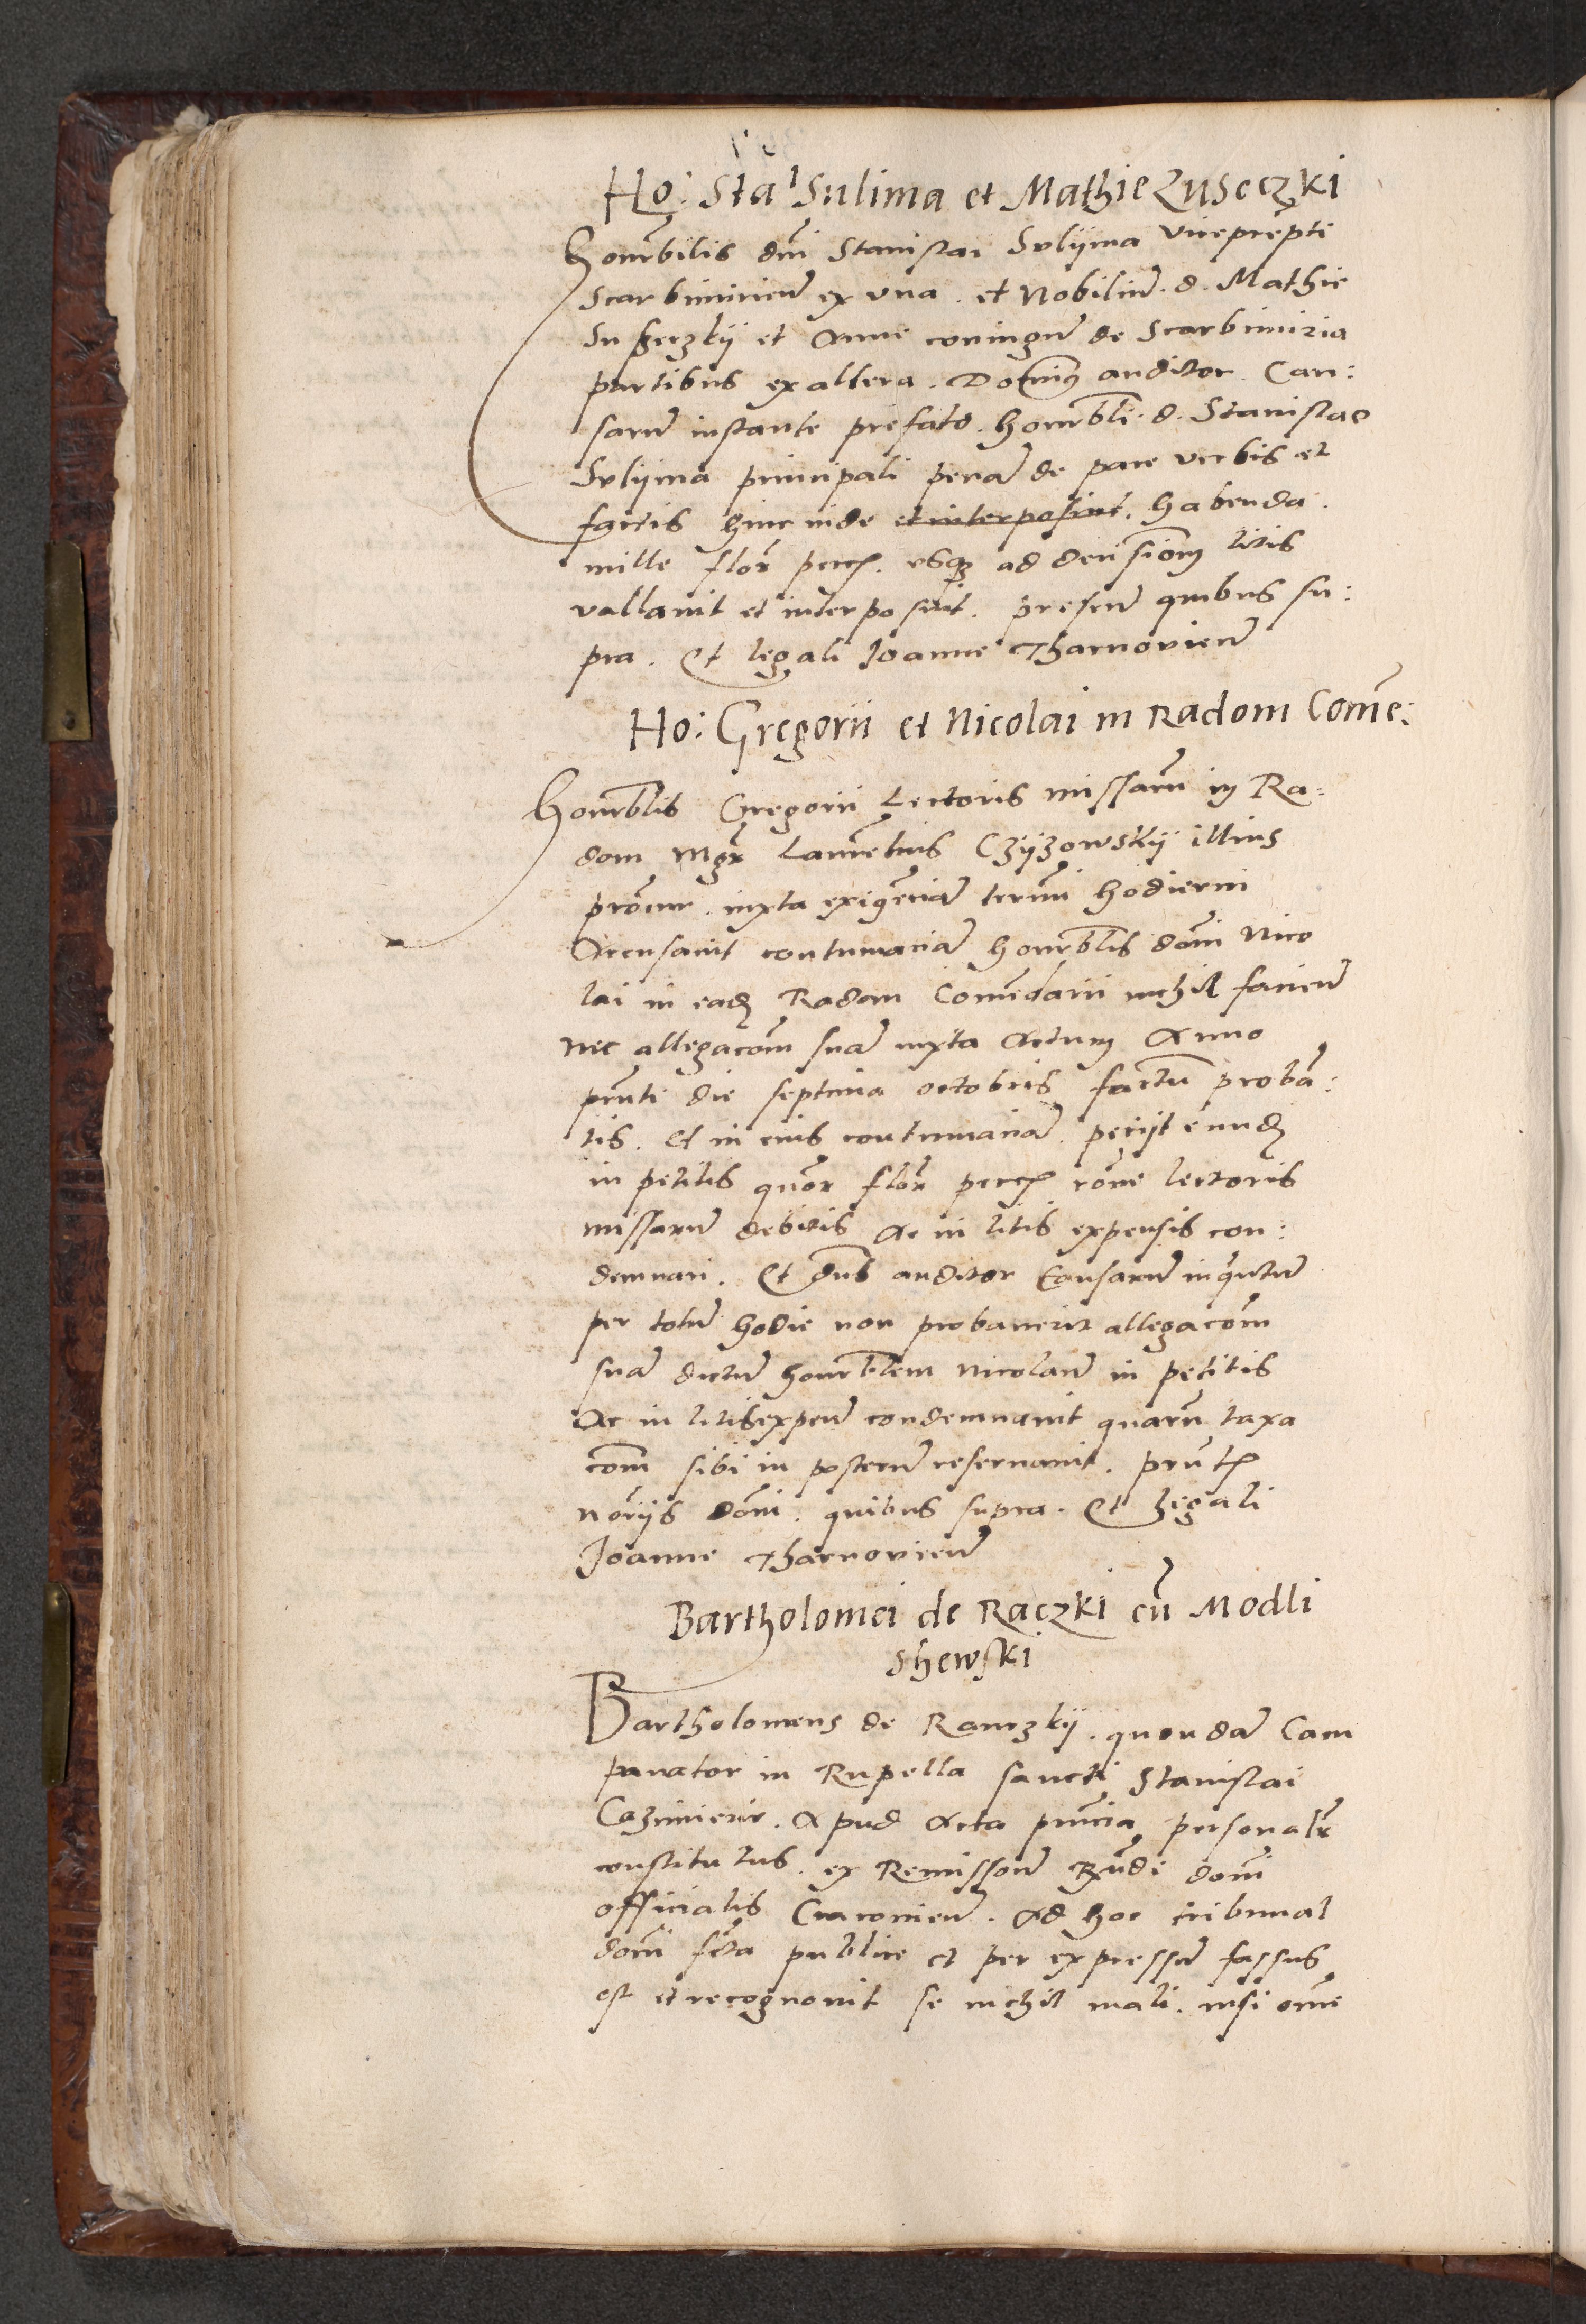 Ho: Sta^l Sulima et Mathie Zuseczki
honrbilis dni Stanislai Sulijma viceprepti
Scarbimirien ex una . et Nobilium . d . Mathie
Suseczkij et Anne coniugum de Scarbimiria
partibus ex altera . Dominus auditor Cau:
sarum instante prefato . honrbli . d . Stanislao
Sulijma principali penam de pace verbis et
factis hinc inde et interposuit . habenda .
mille flor pecce . usque ad decisionem litis
vallavit et interposuit . presen quibus su:
pra . Et legali Joanne Tharnovien
Ho: Gregorii et Nicolai in Radom Come:
honrblis Gregorii Lectoris missarum in Ra:
dom Mgr Laurentius Czijzowskij illius
procur . iuxta exigenciam termi hodierni
Accusavit contumaciam honrblis domi Nico
lai in eadem Radom Comendarii nichil facien
nec allegacom suam iuxta Actum Anno
prnti die septima octobris factum proban:
tis . Et in eius contumaciam . petijt eundem
in petitis quor flor pecce rone lectoris
missarum debitis ac in litis expensis con:
demnari . Et dns auditor Causarum inquantum
per totum hodie non probaverit allegacom
suam dictum honrblem Nicolaum in petitis
Ac in litis expen condemnavit quarum taxa
com sibi in posterum reservavit . prnte
noriis domi . quibus supra . Et legali
Joanne Tharnovien
Bartholomei de Raczki cum Modli
shewski
Bartholomeus de Raczkij . quondam Cam
panator in Rupella sancti Stanislai
Cazimirie . Apud Acta prncia personalr
constitutus . ex Remissone Rndi domi
officialis Cracovien . Ad hoc tribunal
domi scta publice et per expressum fassus
est et recognovit se nichil mali . nisi omne